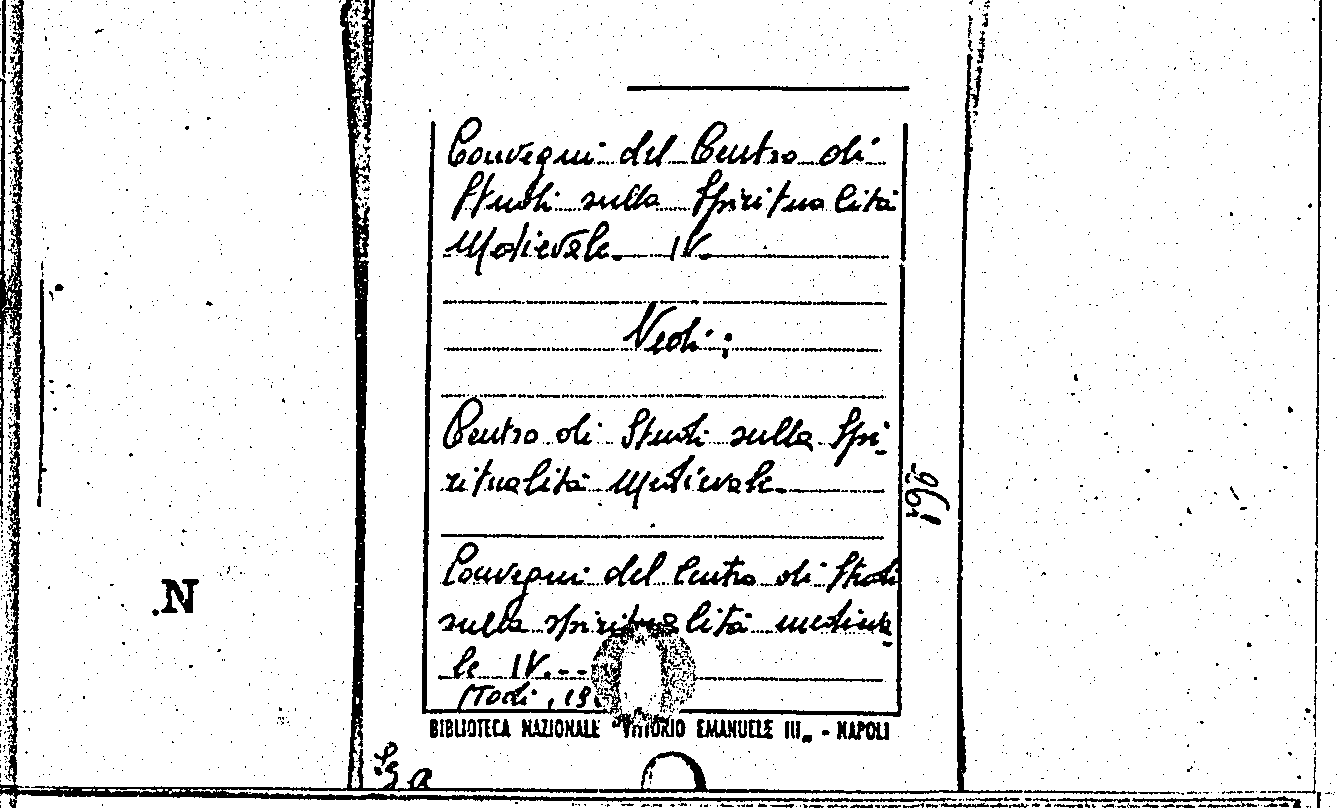 Convegni del Centro di
Studi sulla Spiritualità
Medievale. IV.
Vedi:
Centro di Studi sulla Spi-
ritualità Medievale.
Convegni del Centro di Studi
sulla spiritualità medieva-
le IV.--
(Todi, 19
BIBLIOTECA NAZIONALE "VITTORIO EMANUELE III„ - NAPOLI
.N